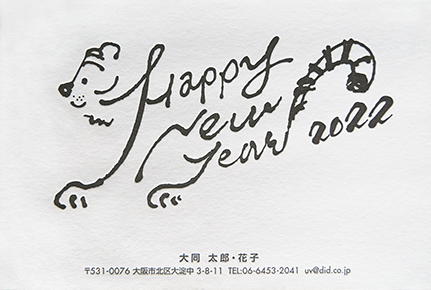 Happy
New
Year 2022
大同 太郎・花子
〒531-0076 大阪市北区大淀中 3-8-11 TEL:06-6453-2041 uv@did.co.jp